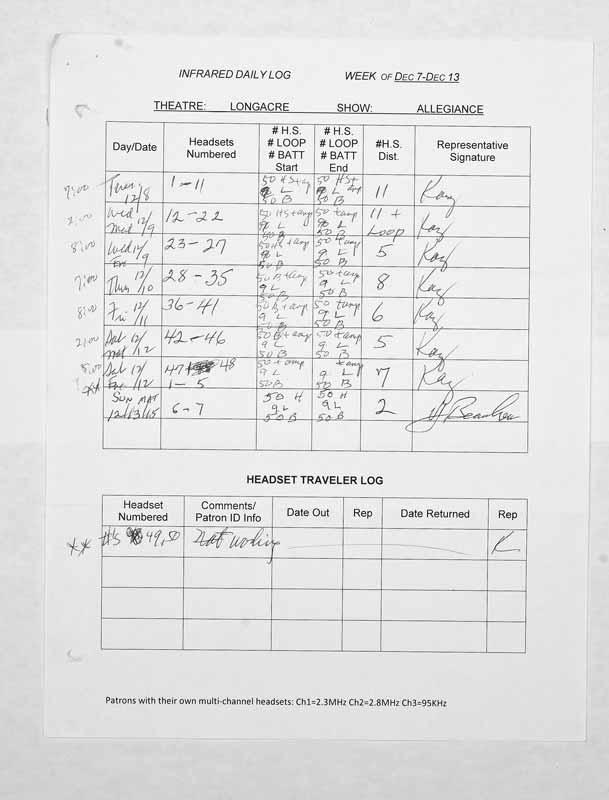 INFRARED DAILY LOG WEEK OF DEC 7-DEC 13
THEATRE: LONGACRE SHOW: ALLEGIANCE
Day/Date Headsets Numbered # H.S. # LOOP # BATT Start # H.S. # LOOP # BATT End #H.S. Dist. Representative Signature
7:00 Tues 12/8 1-11 50 HS+amp 9 L 50 B 50 HS+ amp 9 L 50 B 11 Kay
2:00 Wed 12/9 mat 12-22 50 HS+amp 9 L 50 B 50 +amp 9 L 50 B 11 + Loop Kay
8:00 Wed 12/9 Eve 23-27 50 HS+amp 9 L 50 B 50 +amp 9 L 50 B 5 Kay
7:00 Thurs 12/10 28-35 50 B+amp 9 L 50 B 50 +amp 9 L 50 B 8 Kay
8:00 Fri 12/11 36-41 50 B+amp 9 L 50 B 50 +amp 9 L 50 B 6 Kay
2:00 Sat 12/12 mat 42-46 50 B+amp 9 L 50 B 50 +amp 9 L 50 B 5 Kay
8:00 Sat 12/12 Eve ** 47 48 1-5 50 +amp 9 L 50 B +amp 9 L 50 B 7 Kay
SUN MAT 12/13/15 6-7 50 H 9L 50 B 50 H 9L 50 B 2
HEADSET TRAVELER LOG
Headset Numbered Comments/ Patron ID Info Date Out Rep Date Returned Rep
** #'s 49,50 Not working K
Patrons with their own multi-channel headsets: Ch1=2.3MHz Ch2=2.8MHz Ch3=95KHz